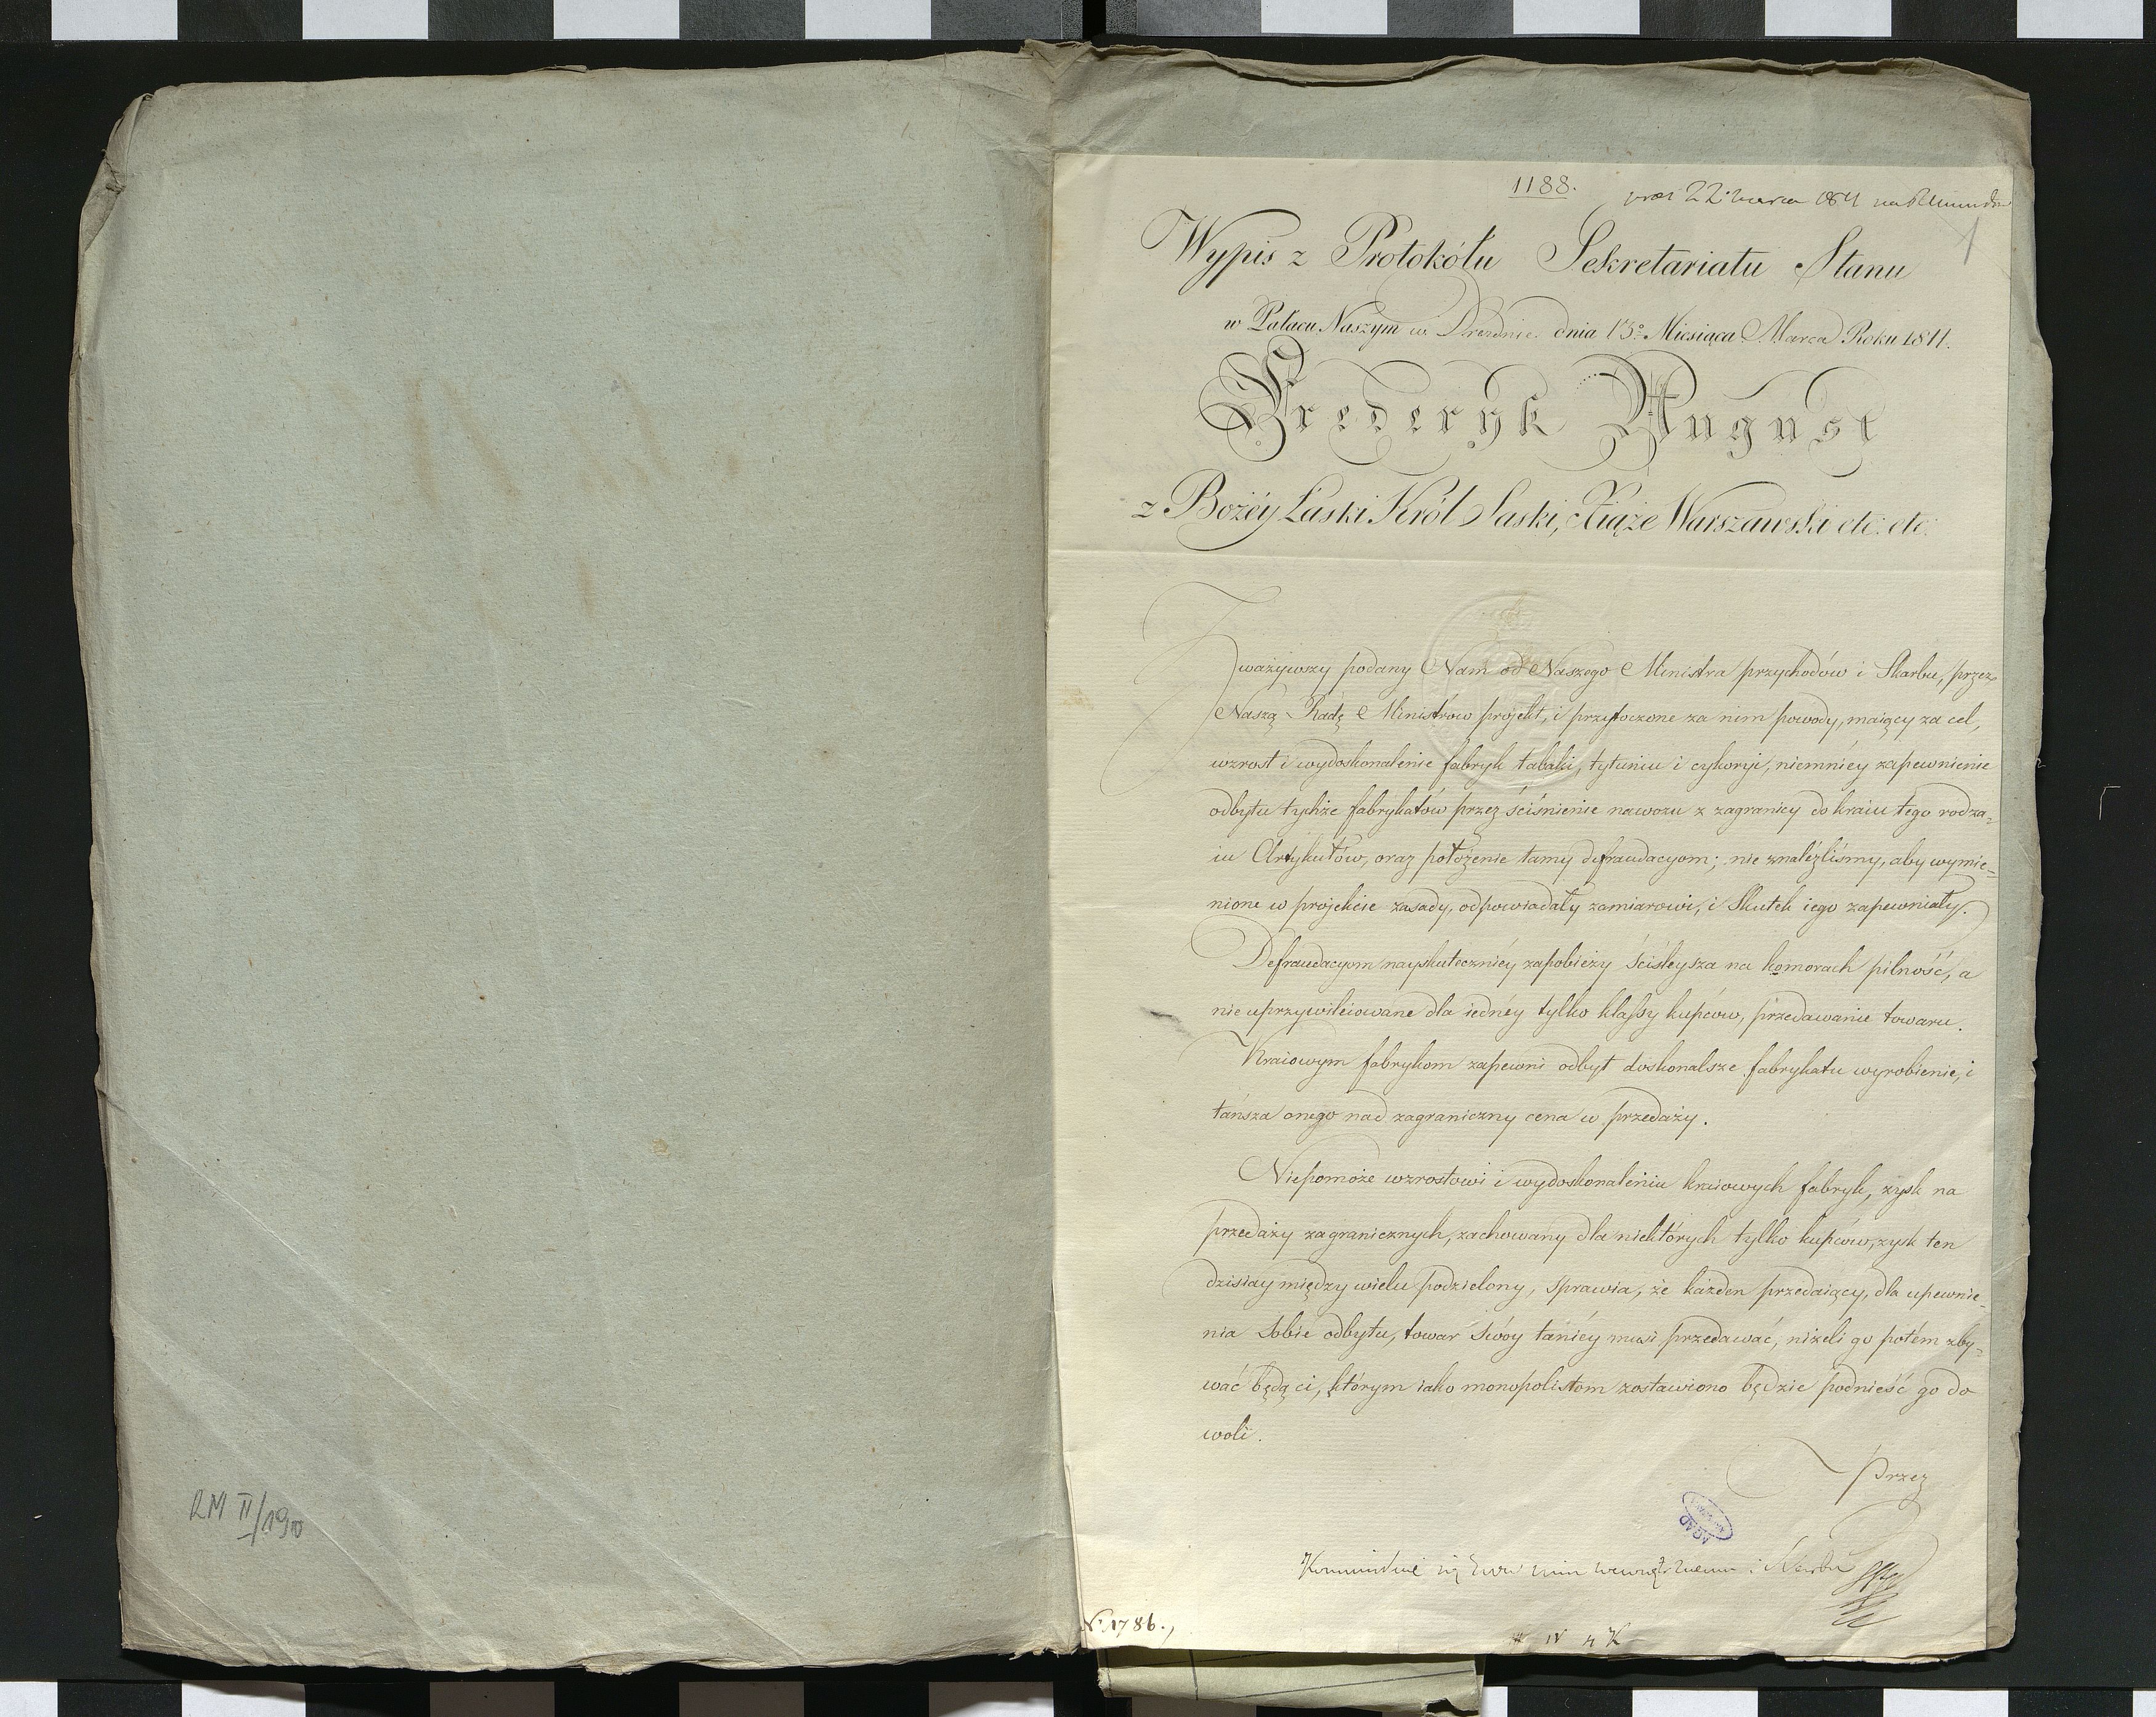 1188.
22. marca 1811
1
Wypis z Protokółu Sekretariatu Stanu
w Pałacu Naszym w Dreznie dnia 13º Miesiąca Marca Roku 1811.
Frederyk August
z Bożéy Łaski Król Saski, Xiąże Warszawski etc: etc:
Zważywszy podany Nam od Naszego Ministra przychodów i Skarbu, przez
Naszą Radę Ministrow projekt, i przytoczone za nim powody, maiący za cel,
wzrost i wydoskonalenie fabryk tabaki, tytuniu i cykoryi, niemniéy zapewnienie
odbytu tychże fabrykatów przez ściśnienie nawozu z zagranicy do kraiu tego rodza-
iu Artykułów, oraz położenie tamy defraudacyom; nie znaleźliśmy, aby wymie-
nione w projekcie zasady, odpowiadały zamiarowi, i Skutek iego zapewniały.
Defraudacyom nayskuteczniéy zapobieży ściśleysza na komorach pilność, a
nie uprzywileiowane dla iednéy tylko klassy kupców, przedawanie towaru.
Kraiowym fabrykom zapewni odbyt doskonalsze fabrykatu wyrobienie, i
tańsza onego nad zagraniczny cena w przedaży.
Niepomoże wzrostowi i wydoskonaleniu kraiowych fabryk, zysk na
przedaży zagranicznych, zachowany dla niektórych tylko kupców, zysk ten
dzisiay między wielu podzielony, sprawia, że każden przedaiący, dla upewnie-
nia sobie odbytu, towar swóy taniéy musi przedawać, niżeli go potém zby-
wać będą ci, którym iako monopolistom zostawiono będzie podnieść go do
woli.
Przez
AGAD
i Skarbu
N. 1786.
RM II/190